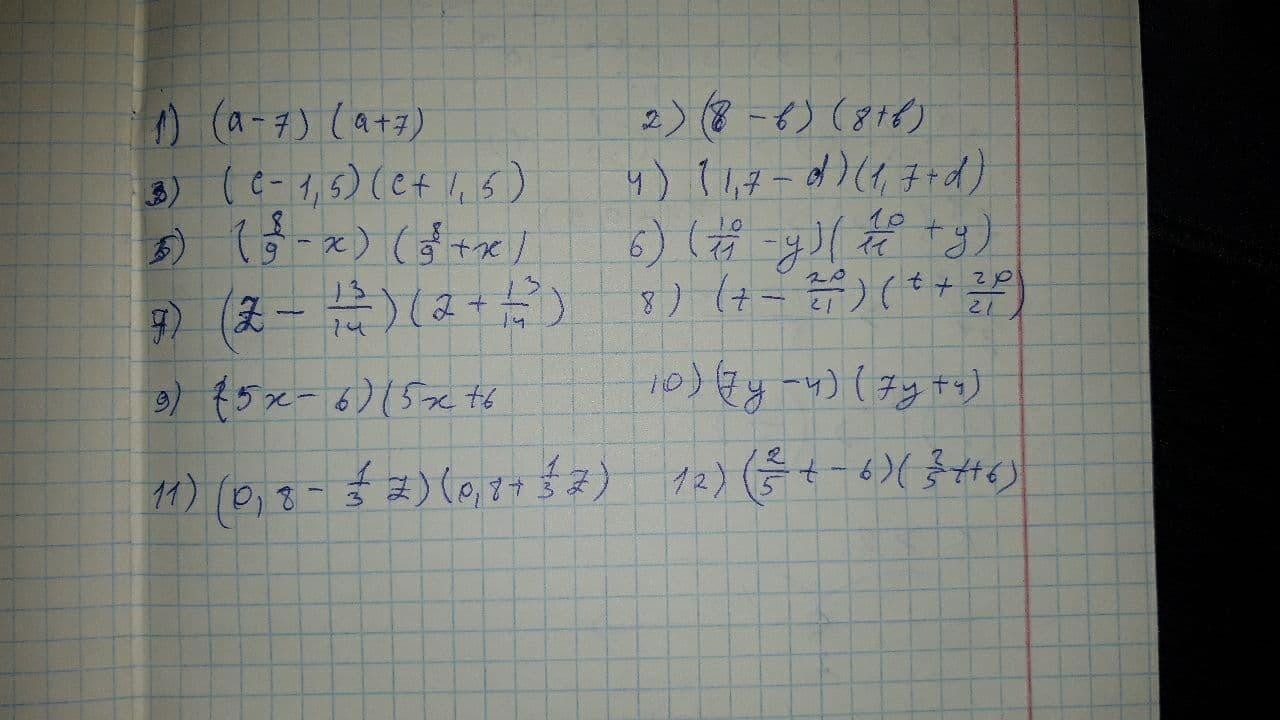 1) (a - 7) (a + 7) 2) (8 - b) (8 + b)
3) (c - 1,5) (c + 1,5) 4) (1,7 - d) (1,7 + d)
5) (8/9 - x) (8/9 + x) 6) (10/11 - y) (10/11 + y)
7) (z - 13/14) (z + 13/14) 8) (t - 20/21) (t + 20/21)
9) (5x - 6) (5x + 6 10) (7y - 4) (7y + 4)
11) (0,8 - 1/3 z) (0,8 + 1/3 z) 12) (2/5 t - 6) (2/5 t + 6)